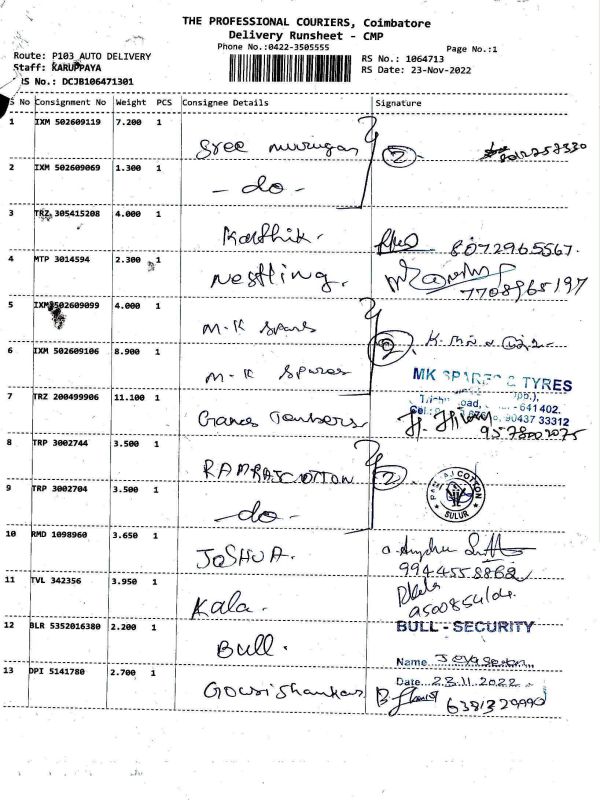 THE PROFESSIONAL COURIERS, Coimbatore
Delivery Runsheet - CMP
Phone No.:0422-3505555
Page No.:1
Route: P103 AUTO DELIVERY
RS No.: 1064713
Staff: KARUPPAYA
RS Date: 23-Nov-2022
IS No.: DCJB106471301
S No Consignment No Weight PCS Consignee Details Signature
1 IXM 502609119 7.200 1 Sree Murugan 2
2 IXM 502609069 1.300 1 -do-
3 TRZ 305415208 4.000 1 Karthik. 8072965567.
4 MTP 3014594 2.300 1 Nestling. 7708965197
5 IXM 502609099 4.000 1 M.K Spares 2
6 IXM 502609106 8.900 1 M.K Spares
MK SPARES & TYRES
641 402.
90437 33312
7 TRZ 200499906 11.100 1 9578002075
8 TRP 3002744 3.500 1 RAMRAJ COTTON 2
RAMRAJ COTTON
SULUR
9 TRP 3002704 3.500 1 -do-
10 RMD 1098960 3.650 1 JOSHUA.
9944558868
11 TVL 342356 3.950 1 Kala. Kala
12 BLR 5352016380 2.200 1 Bull.
BULL - SECURITY
Name
Date 23.11.2022
13 DPI 5141780 2.700 1 Gowri Shankar 6381329990